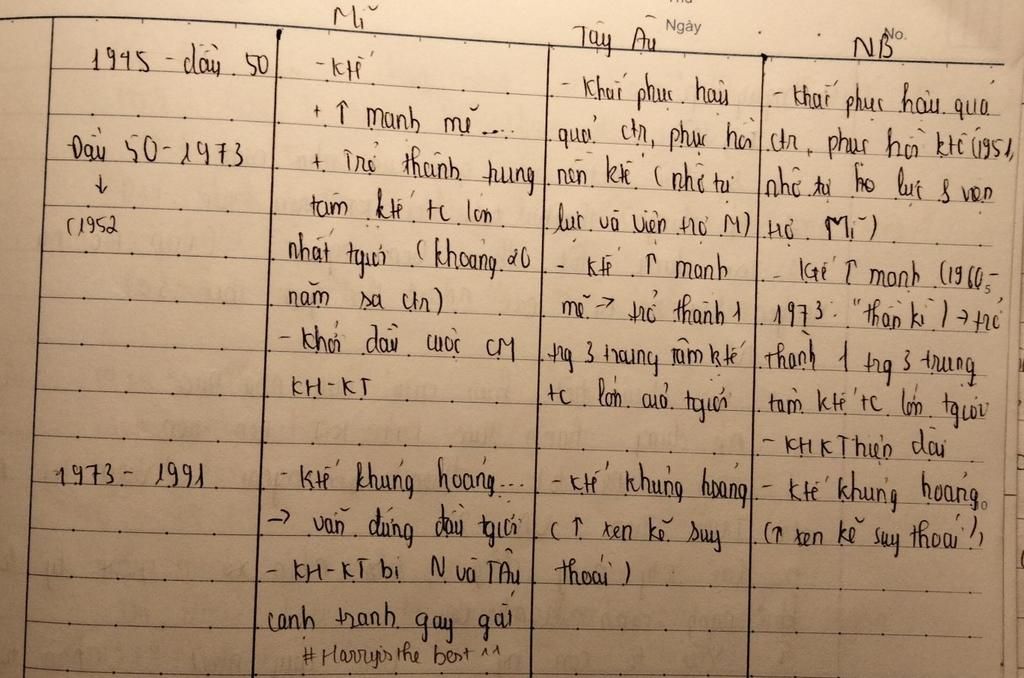 Mĩ
Tây Âu
Ngày
NB
No.
1945 - đầu 50
Đầu 50 - 1973
↓
(1952
1973 - 1991
- Ktế
+ ↑ mạnh mẽ....
+ Trở thành trung
tâm ktế tc lớn
nhất tgiới (khoảng 20
năm sa ctr)
- Khởi đầu cuộc CM
KH-KT
- Ktế khủng hoảng...
→ vẫn đứng đầu tgiới
- KH-KT bị N và TÂu
cạnh tranh gay gắt
#Harry is the best ^^
- Khắc phục hậu
quả ctr, phục hồi
nền ktế (nhờ tự
lực và viện trợ M)
- Ktế ↑ mạnh
mẽ → trở thành 1
trg 3 trung tâm ktế
tc lớn của tgiới
- Ktế khủng hoảng
(↑ xen kẽ suy
thoái)
- Khắc phục hậu quả
ctr, phục hồi ktế (1951,
nhờ tự lực & viện
trợ Mĩ)
- Ktế ↑ mạnh (1960-
1973: "thần kì") → trở
thành 1 trg 3 trung
tâm ktế tc lớn tgiới
- KHKT hiện đại
- Ktế khủng hoảng
(↑ xen kẽ suy thoái)